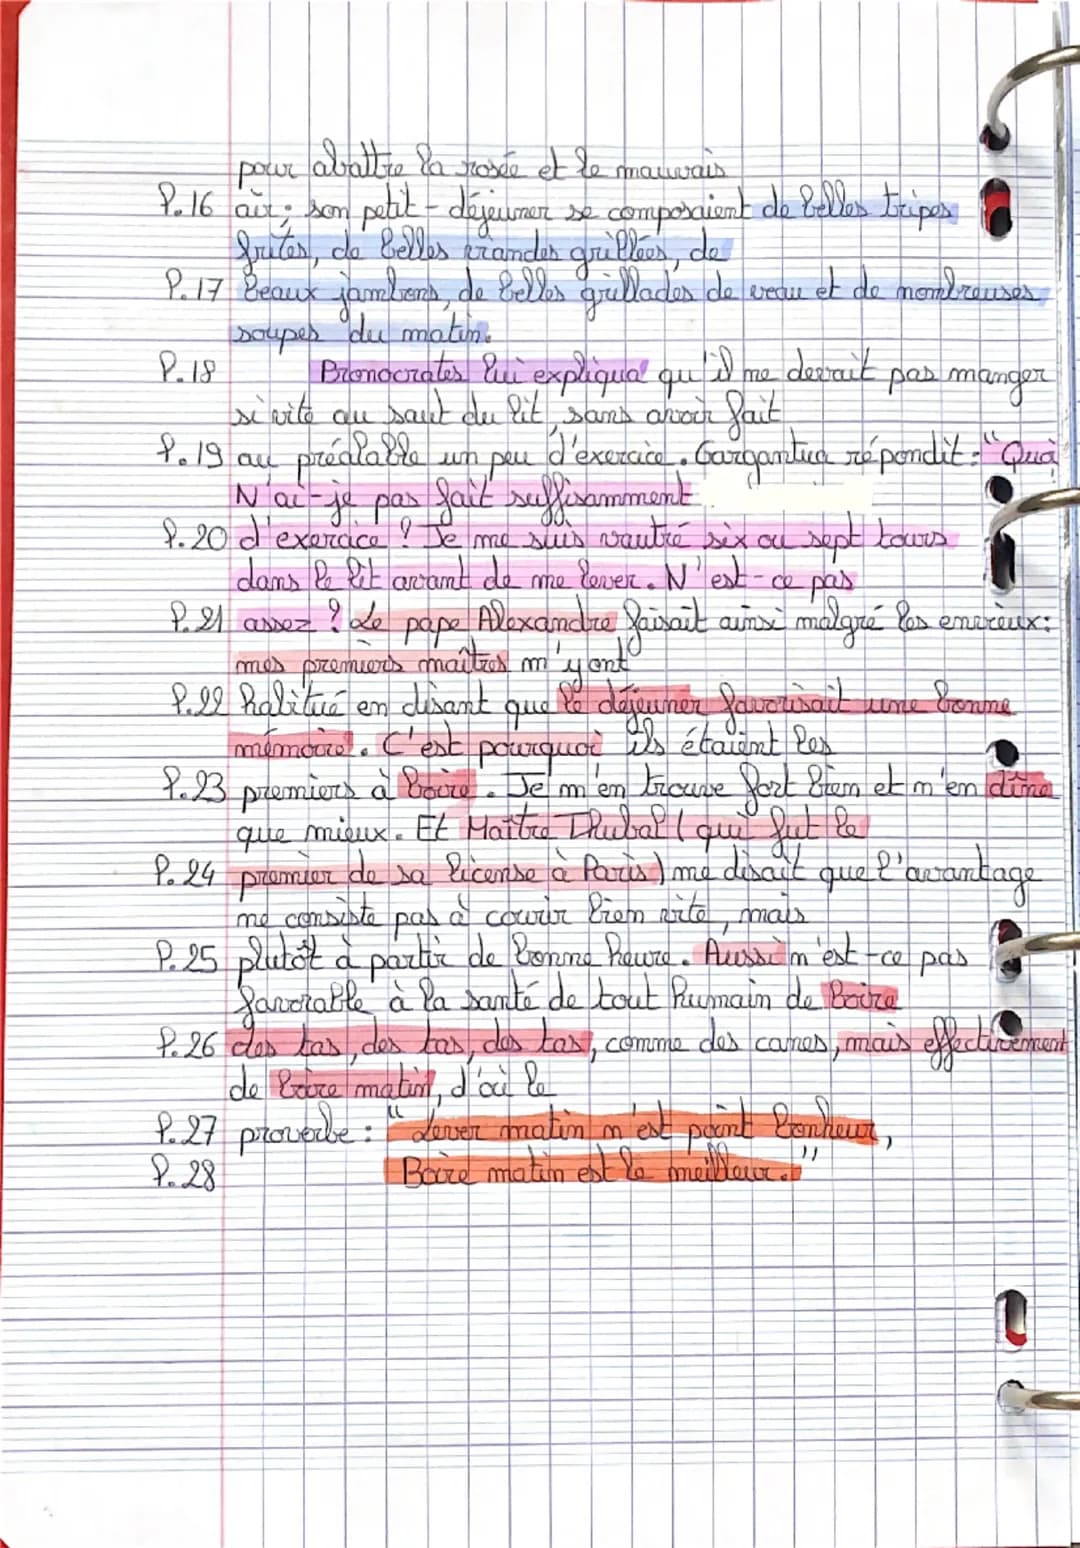 pour abattre la rosée et le mauvais
P.16 air ; son petit-déjeuner se composaient de belles tripes
frites, de belles viandes grillées, de
P.17 beaux jambons, de belles grillades de veau et de nombreuses
soupes du matin.
P.18 Pronocrates lui expliqua qu'il ne devrait pas manger
si vite au saut du lit, sans avoir fait
P.19 au préalable un peu d'exercice. Gargantua répondit : "Quoi
N'ai-je pas fait suffisamment
P.20 d'exercice ? Je me suis vautré six ou sept tours
dans le lit avant de me lever. N'est-ce pas
P.21 assez ? Le pape Alexandre faisait ainsi malgré les envieux :
mes premiers maîtres m'y ont
P.22 habitué en disant que le déjeuner favorisait une bonne
mémoire. C'est pourquoi ils étaient les
P.23 premiers à boire. Je m'en trouve fort bien et m'en dîne
que mieux. Et Maître Thubal (qui fut le
P.24 premier de sa license à Paris) me disait que l'avantage
ne consiste pas à courir bien vite, mais
P.25 plutôt à partir de bonne heure. Aussi n'est-ce pas
favorable à la santé de tout humain de boire
P.26 des tas, des tas, des tas, comme des canes, mais effectivement
de boire matin, d'où le
P.27 proverbe : "Lever matin n'est point bonheur,
P.28 Boire matin est le meilleur."